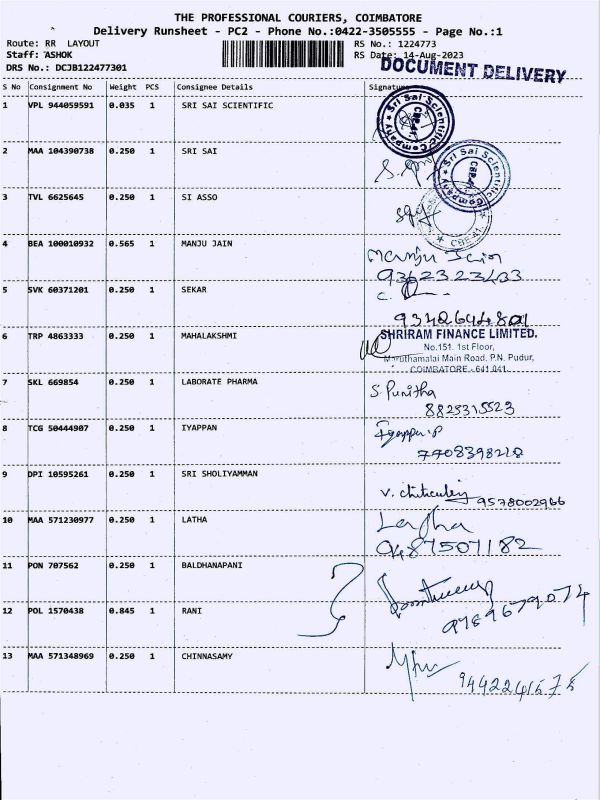 THE PROFESSIONAL COURIERS, COIMBATORE
Delivery Runsheet - PC2 - Phone No.:0422-3505555 - Page No.:1
Route: RR LAYOUT RS No.: 1224773
Staff: ASHOK RS Date: 14-Aug-2023
DRS No.: DCJB122477301 DOCUMENT DELIVERY
S No Consignment No Weight PCS Consignee Details Signature
1 VPL 944059591 0.035 1 SRI SAI SCIENTIFIC
Sri Sai Scientific Company
2 MAA 104390738 0.250 1 SRI SAI
Sri Sai Scientific Company
3 TVL 6625645 0.250 1 SI ASSO
CBE-41
4 BEA 100010932 0.565 1 MANJU JAIN Manju Jain
5 SVK 60371201 0.250 1 SEKAR
6 TRP 4863333 0.250 1 MAHALAKSHMI SHRIRAM FINANCE LIMITED.
No.151. 1st Floor,
Maruthamalai Main Road, P.N. Pudur,
COIMBATORE - 641 041.
7 SKL 669854 0.250 1 LABORATE PHARMA S. Punitha
8825315523
8 TCG 50444907 0.250 1 IYAPPAN
7708398218
9 DPI 10595261 0.250 1 SRI SHOLIYAMMAN
9578002966
10 MAA 571230977 0.250 1 LATHA Latha
9487507182
11 PON 707562 0.250 1 BALDHANAPANI
12 POL 1570438 0.845 1 RANI
9789679074
13 MAA 571348969 0.250 1 CHINNASAMY